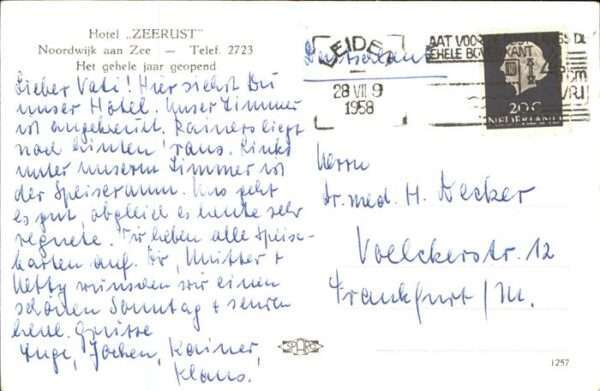 Hotel „ZEERUST"
Noordwijk aan Zee — Telef. 2723
Het gehele jaar geopend
Lieber Vati! Hier siehst Du
unser Hotel. Unser Zimmer
ist angekreuzt. Rainers liegt
nach hinten 'raus. Links
unter unserem Zimmer ist
der Speiseraum. Uns geht
es gut, obgleich es heute sehr
regnete. Wir heben alle Speise-
karten auf. Dir, Mutter +
Hetty wünschen wir einen
schönen Sonntag + senden
herzl. Grüsse
Inge, Jochen, Rainer,
Klaus.
Deutschland
LEIDEN
28 VII 9
1958
20c
NEDERLAND
Herrn
Dr. med. H. Decker
Voelckerstr. 12
Frankfurt/M.
1257